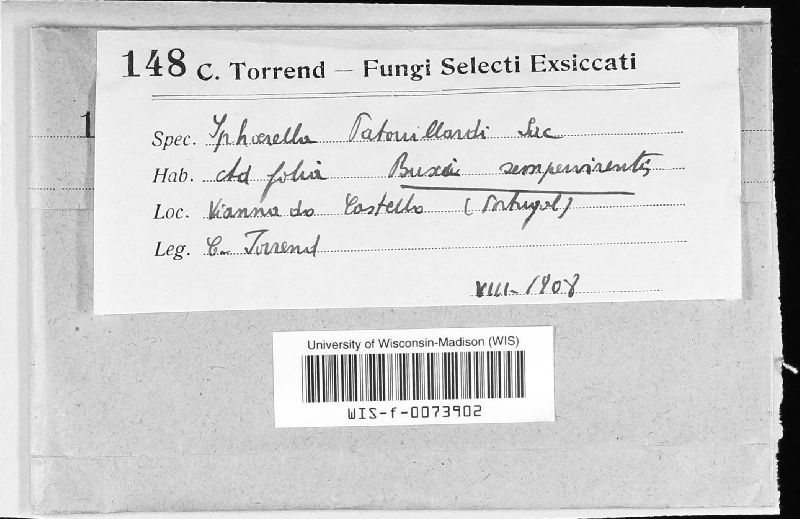 148 C. Torrend — Fungi Selecti Exsiccati
1
Spec. Sphærella Patouillardi Sac
Hab. Ad folia Buxi sempervirentis
Loc. Vianna do Castello (Portugal)
Leg. C. Torrend
VIII-1908
University of Wisconsin-Madison (WIS)
WIS-f-0073902